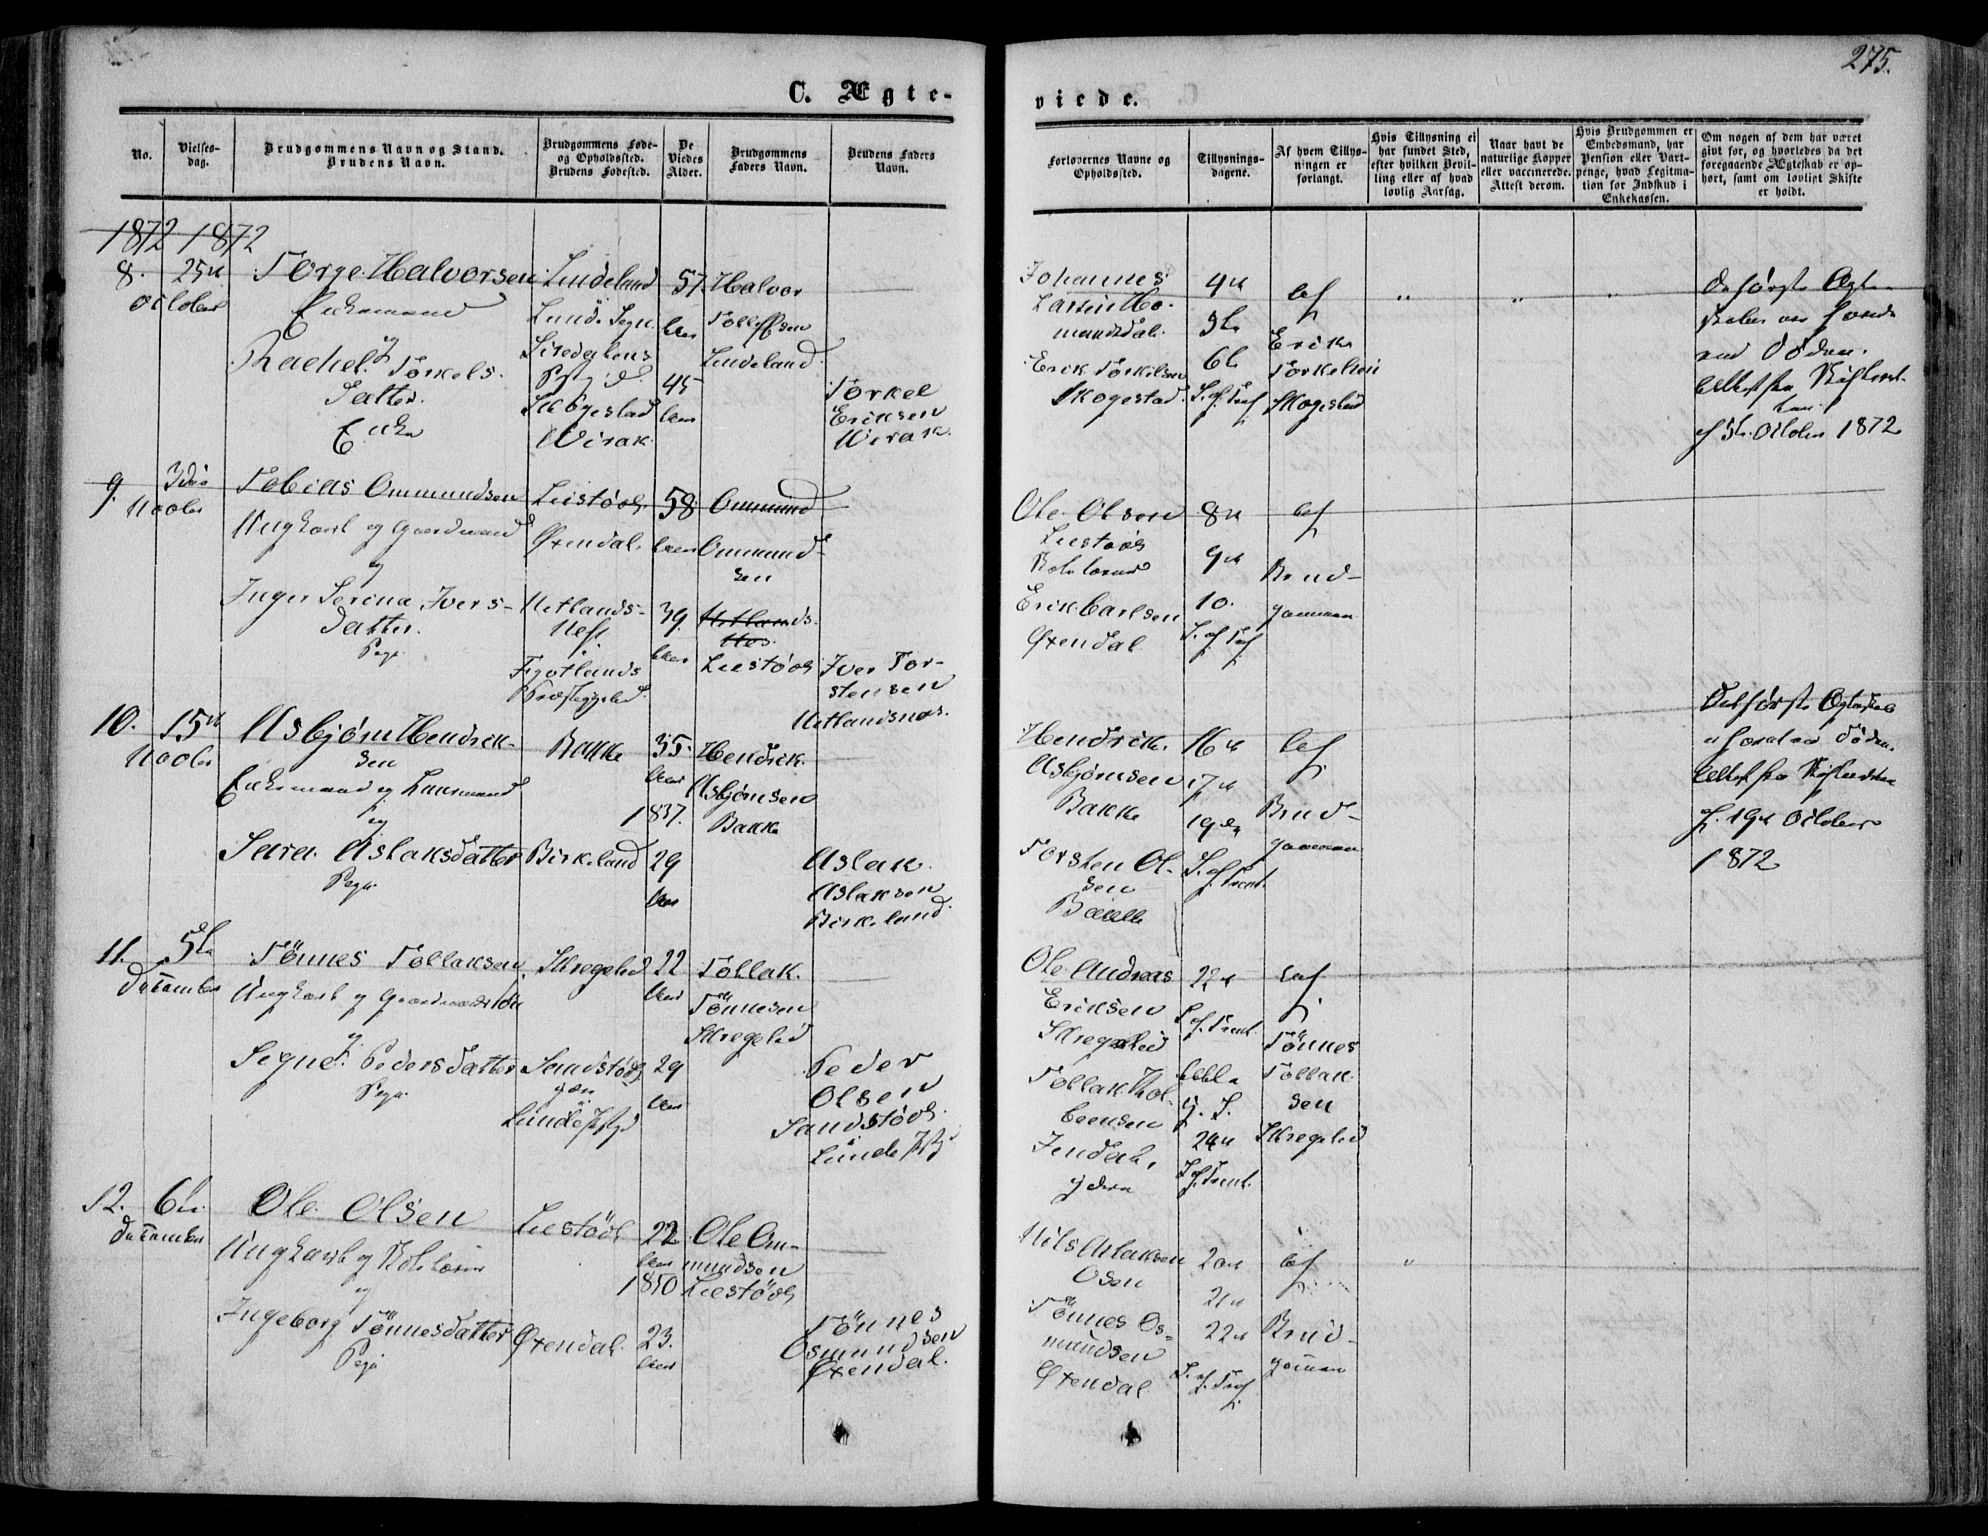 275.
C. Ægte-
viede.
No.
Vielses-
dag.
Brudgommens Navn og Stand.
Brudens Navn.
Brudgommens Føde-
og Opholdssted.
Brudens Fødested.
De
Viedes
Alder.
Brudgommens
Faders Navn.
Brudens Faders
Navn.
Forlovernes Navne og
Opholdssted.
Tillysnings-
dagene.
Af hvem Tillys-
ningen er
forlangt.
Hvis Tillysning ei
har fundet Sted,
efter hvilken Bevil-
ling eller af hvad
lovlig Aarsag.
Naar havt de
naturlige Kopper
eller vaccinerede.
Attest derom.
Hvis Brudgommen er
Embedsmand, har
Pension eller Vart-
penge, hvad Legitima-
tion for Indskud i
Enkekassen.
Om nogen af dem har været
givt for, og hvorledes da det
foregaaende Ægteskab er op-
hørt, samt om lovligt Skifte
er holdt.
1872 1872
8. 25de
October
Torge Halvorsen
Enkemand
og
Rachel Torkels
Datter
Enke
Lindeland
Lunde Sogn
Skogestad
Wirak.
57
Aar
45
Aar
Halvor
Tolleffsen
Lindeland
Torkel
Eriksen
Wirak.
Johannes
Larsen Ho-
mandsdal.
Erik Torkelsen
Skogestad.
4de
5te
6te
S. ef. Tref
af
Erik
Torkelsen
Skogestad
" " "
De første Ægte-
skaber ere hævede
ved Døden.
Attest fra Skifteret-
ten
af 5te October 1872
9. 3die
Novbr
Tobias Ommundsen
Ungkarl og Gaardmand
og
Inger Serina Ivers-
Datter.
Pige
Liestøel
Øxendal.
Netlands-
Nes.
Fjotlands
Præstegjeld.
58
Aar
39.
Aar
Ommund
Ommund-
sen
Netlands-
Nes.
Liestøel
Iver Tor-
stensen
Netlandsnes.
Ole Olsen
Liestøel
Skolelærer
Erik Carlsen
Øxendal
8de
9de
10.
S. ef Tref
af
Brud-
gommen
10. 15de
Novbr
Asbjørn Hendrik-
sen
Enkemand og Lensmand
og
Sara Aslaksdatter
Pige.
Bakke
Birkeland
35
Aar
1837.
29
Aar
Hendrik
Asbjørnsen
Bakke
Aslak
Aslaksen
Birkeland.
Hendrik
Asbjørnsen
Bakke
Torsten Ol-
sen
Bakke
16de
17de
19de
S. ef. Trent.
af
Brud-
gommen
Det første Ægteskab
er hævet ved Døden.
Attest fra Skifteretten
af 19de October
1872
11. 5te
December
Tönnes Tollaksen
Ungkarl og Gaardmandssøn
og
Signe Pedersdatter
Pige.
Skregelid
Sandstøel
Lunde Pstgd
22
Aar
29
Aar
Tollak
Tönnesen
Skregelid
Peder
Olsen
Sandstøel.
Lunde Pstgd
Ole Andreas
Eriksen
Skregelid
Tollak Kol-
beensen
Indal,
ydere
22de
S. ef. Trent.
24de
S. ef. Trent.
af
Tönnes
Tollak-
sen
Skregelid
12. 6te.
December
Ole Olsen
Ungkarl og Skolelærer
og
Ingeborg Tönnesdatter
Pige
Liestøel
Øxendal.
22
Aar
1850
23.
Aar
Ole Om-
mundsen
Liestøel
Tönnes
Osmundsen
Øxendal.
Nils Aslaksen
Osen
Tönnes Os-
mundsen
Øxendal
20de
21de
22de
S. ef. Tref
af
Brud-
gommen
"